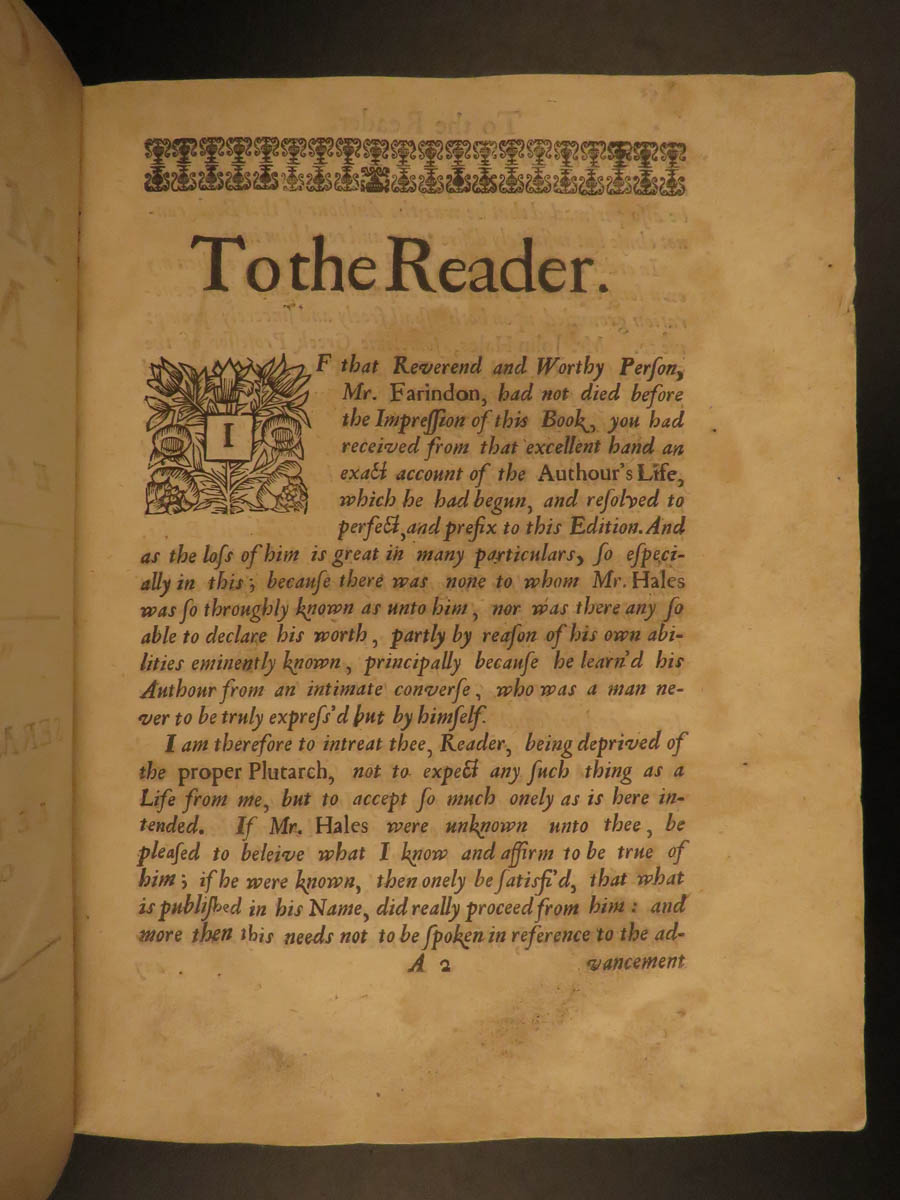 To the Reader.
IF that Reverend and Worthy Perſon,
Mr. Farindon, had not died before
the Impreſſion of this Book, you had
received from that excellent hand an
exact account of the Authour's Life,
which he had begun, and reſolved to
perfect, and prefix to this Edition. And
as the loſs of him is great in many particulars, ſo eſpeci-
ally in this; becauſe there was none to whom Mr. Hales
was ſo throughly known as unto him, nor was there any ſo
able to declare his worth, partly by reaſon of his own abi-
lities eminently known, principally becauſe he learn'd his
Authour from an intimate converſe, who was a man ne-
ver to be truly expreſs'd but by himſelf.
I am therefore to intreat thee, Reader, being deprived of
the proper Plutarch, not to expect any ſuch thing as a
Life from me, but to accept ſo much onely as is here in-
tended. If Mr. Hales were unknown unto thee, be
pleaſed to beleive what I know and affirm to be true of
him; if he were known, then onely be ſatisfi'd, that what
is publiſhed in his Name, did really proceed from him: and
more then this needs not to be ſpoken in reference to the ad-
A 2 vancement